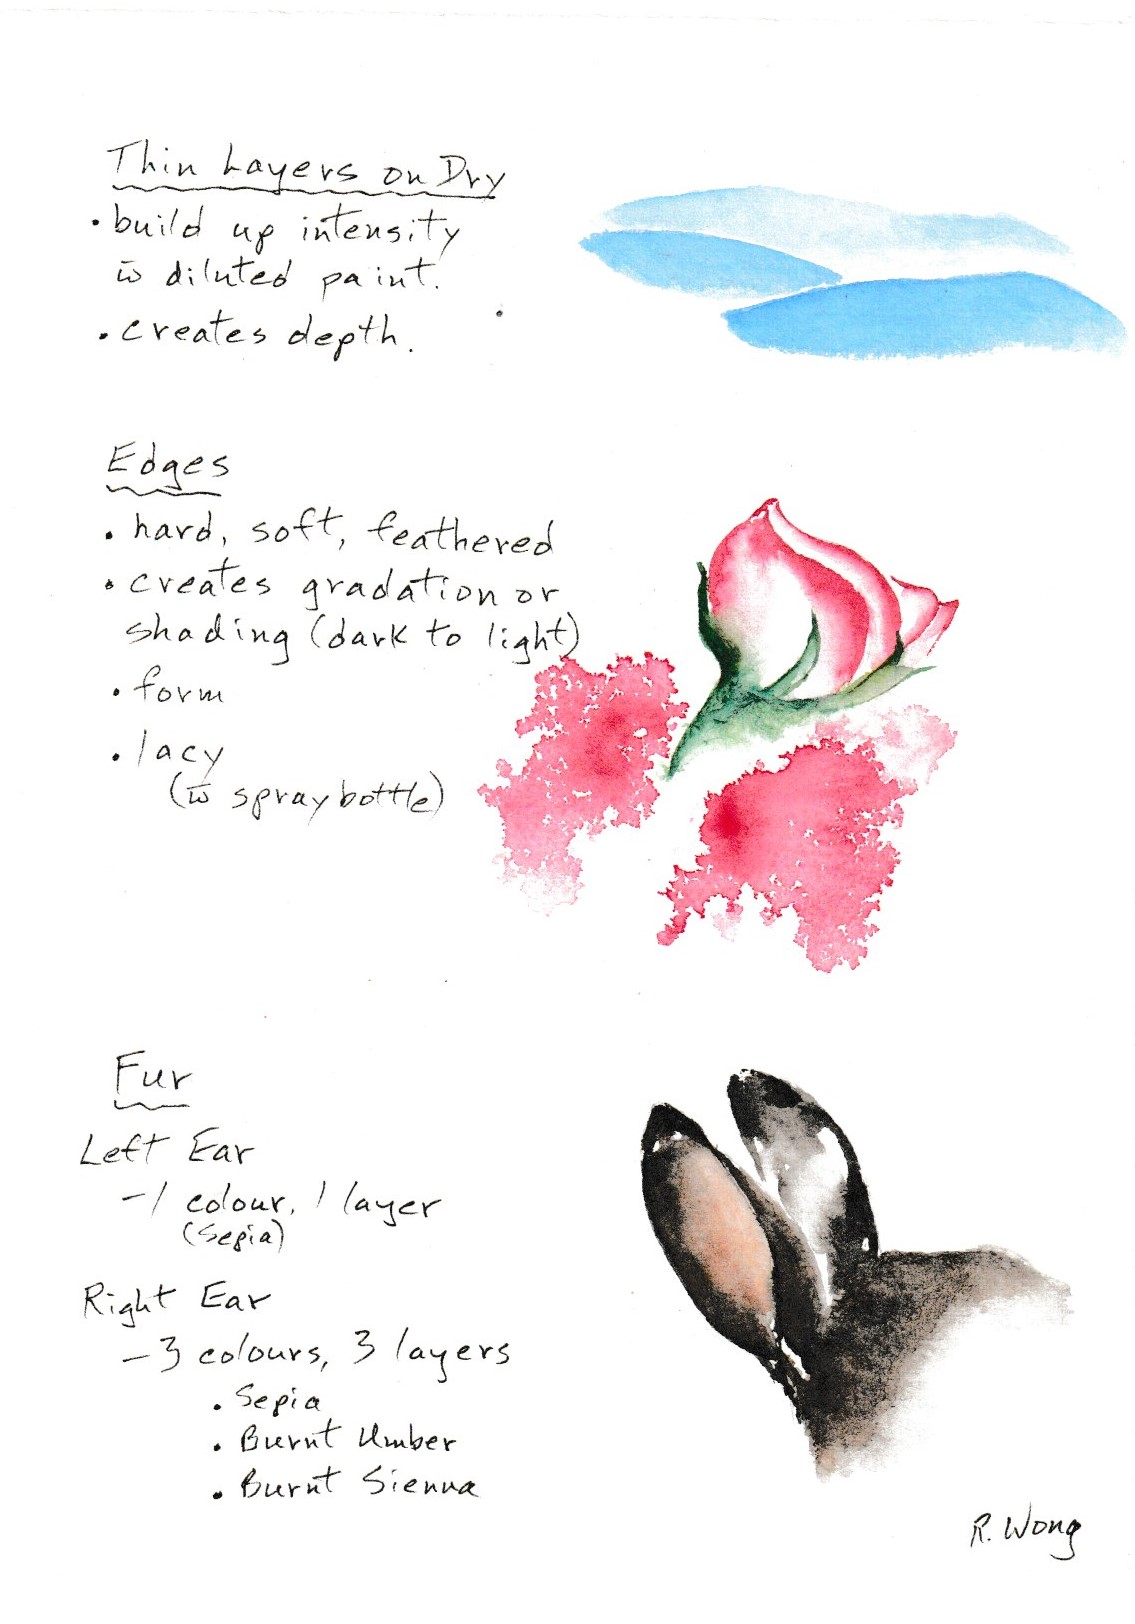 Thin Layers on Dry
• build up intensity
w̄ diluted paint.
• creates depth.
Edges
• hard, soft, feathered
• creates gradation or
shading (dark to light)
• form
• lacy
(w̄ spray bottle)
Fur
Left Ear
- 1 colour, 1 layer
(Sepia)
Right Ear
- 3 colours, 3 layers
• Sepia
• Burnt Umber
• Burnt Sienna
R. Wong